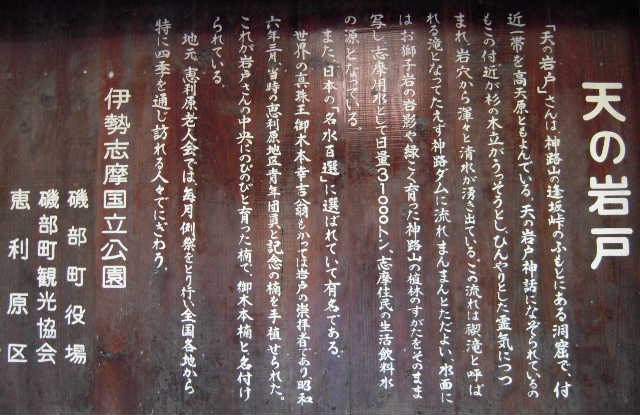 天の岩戸
「天の岩戸」さんは、神路山の逢坂峠のふもとにある洞窟で、付
近一帯を高天原ともよんでいる。天の岩戸神話になぞられているの
もこの付近が杉の木立がうっそうとし、ひんやりとした霊気につつ
まれ、岩穴から渾々と清水が湧き出ている。この流れは禊滝と呼ば
れる滝となってたえず神路ダムに流れまんまんとただよい、水面に
はお獅子岩の岩影や緑こく育った神路山の植林のすがたをそのまま
写し、志摩用水として日量31000トン、志摩住民の生活飲料水
の源となっている。
また、日本の「名水百選」に選ばれていて有名である。
世界の真珠王御木本幸吉翁もかつては岩戸の崇拝者であり昭和
六年三月、当時の恵利原地区青年団員と記念の楠を手植せられた。
これが岩戸さんの中央にのびのびと育った楠で、御木本楠と名付け
られている。
地元、恵利原老人会では、毎月例祭をとり行い全国各地から
特に四季を通じ訪れる人々でにぎわう。
伊勢志摩国立公園
磯部町役場
磯部町観光協会
恵利原区